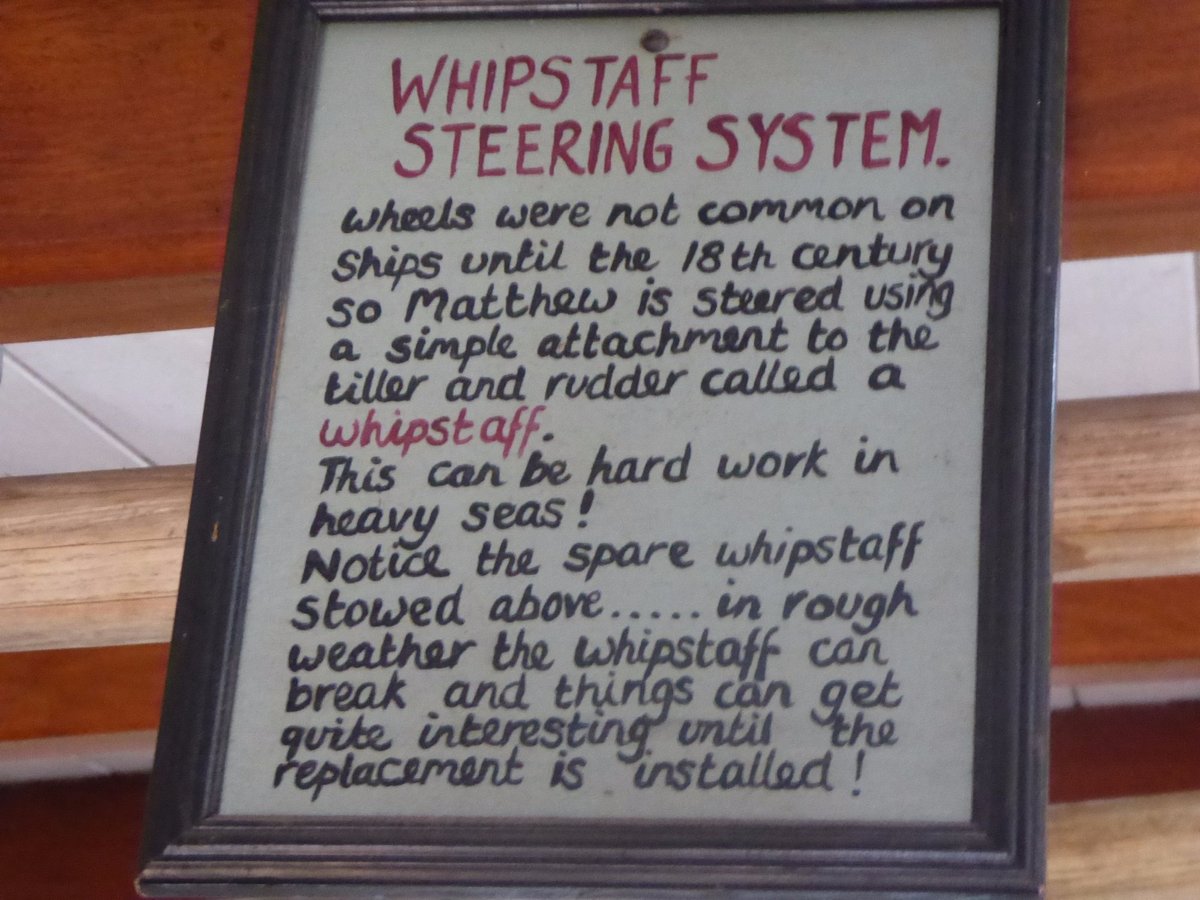 WHIPSTAFF
STEERING SYSTEM.
Wheels were not common on
ships until the 18th century
so Matthew is steered using
a simple attachment to the
tiller and rudder called a
whipstaff.
This can be hard work in
heavy seas!
Notice the spare whipstaff
stowed above.....in rough
weather the whipstaff can
break and things can get
quite interesting until the
replacement is installed!